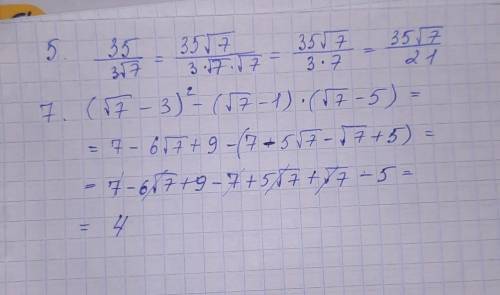 5. 35/3√7 = 35√7/3·√7·√7 = 35√7/3·7 = 35√7/21
7. (√7 - 3)² - (√7 - 1)·(√7 - 5) =
= 7 - 6√7 + 9 - (7 - 5√7 - √7 + 5) =
= 7 - 6√7 + 9 - 7 + 5√7 + √7 - 5 =
= 4